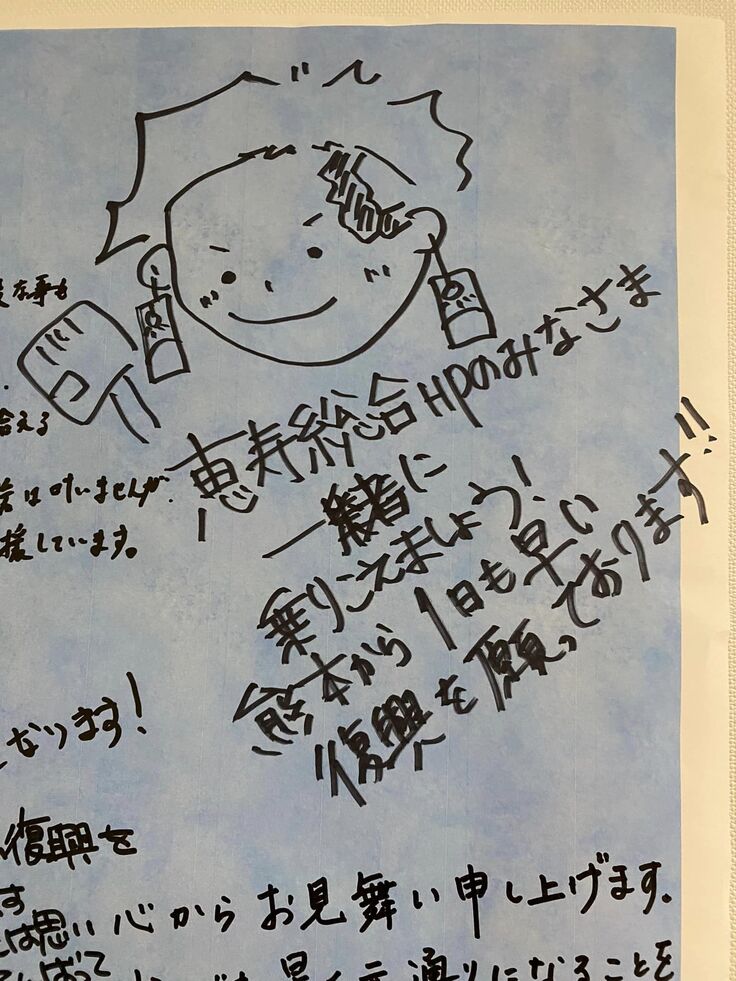 な事も
合える
は叶いませんが、
援しています。
恵寿総合HPのみなさま
一緒に
乗りこえましょう!
熊本から1日も早い
復興を願っております!!
なります!
復興を
す
は思い
ばって
心からお見舞い申し上げます。
早く元通りになることを